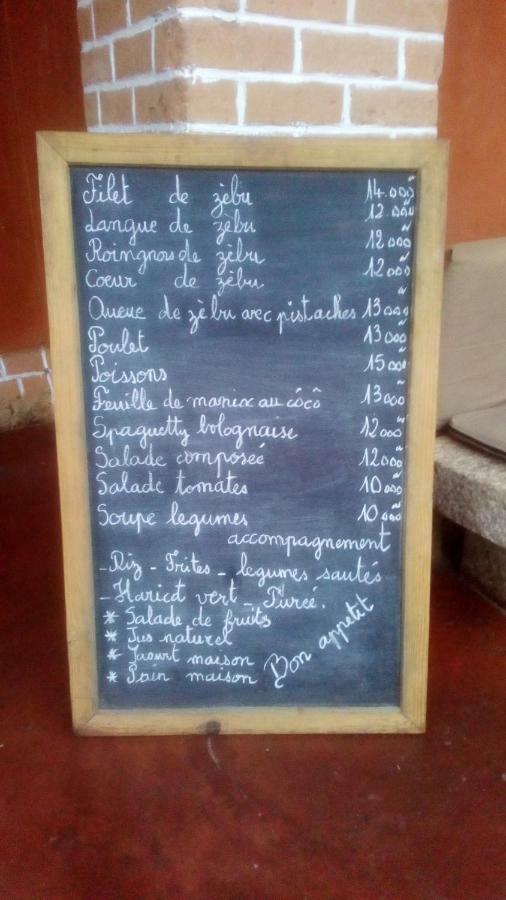 Filet de zèbu 14.000
Langue de zèbu 12.000
Roingnos de zèbu 12000
Coeur de zèbu 12000
Queue de zèbu avec pistaches 13000
Poulet 13000
Poissons 15000
Feuille de maniox au côcô 13000
Spaguetty bolognaise 12000
Salade composeé 12000
Salade tomates 10000
Soupe legumes 10000
accompagnement
- Riz - Frites - legumes sautés
- Haricot vert - Pureé.
* Salade de fruits
* Jus naturel
* Yaourt maison
* Pain maison
Bon appetit